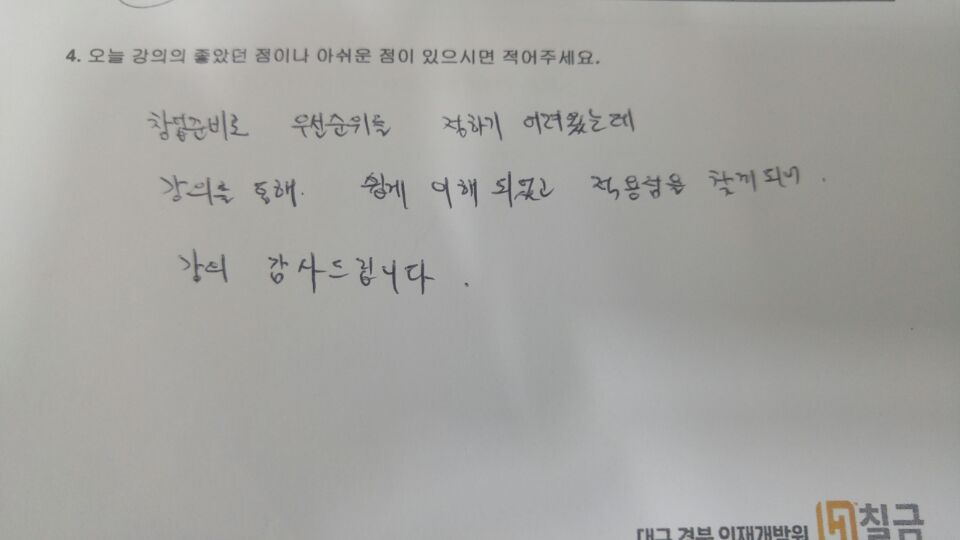 4. 오늘 강의의 좋았던 점이나 아쉬운 점이 있으시면 적어주세요.
창업준비로 우선순위를 정하기 어려웠는데
강의를 통해. 쉽게 이해 되었고 적용점을
강의 감사드립니다.
대구 경북 인재개발원 칠금